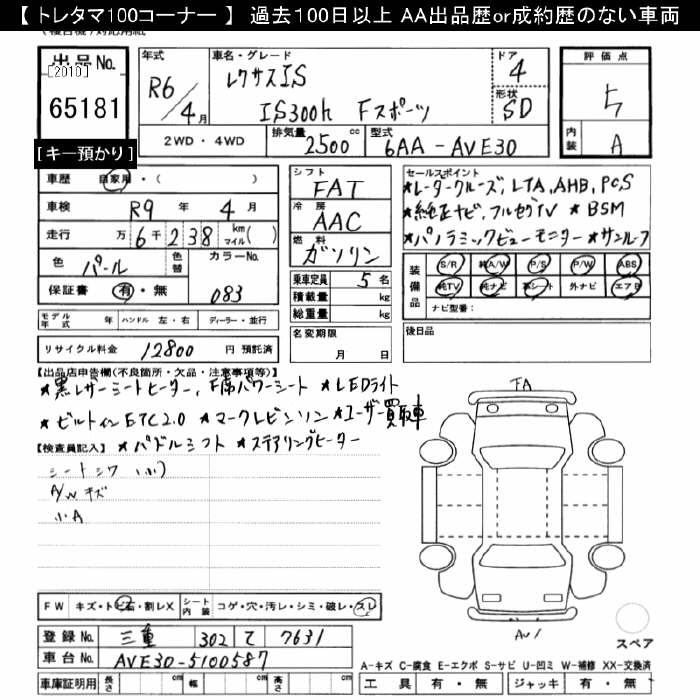 【 トレタマ100コーナー 】 過去100日以上 AA出品歴or成約歴のない車両
出品No.
[2010]
65181
[キー預かり]
年式
R6/4月
車名・グレード
レクサスIS
IS300h Fスポーツ
ドア
4
形状
SD
2WD・4WD
排気量
2500 cc
型式
6AA-AVE30
評価点
5
内装
A
車歴 自家用・( )
車検 R9年 4月
走行 万 6千238 km マイル( )
色 パール 色替 カラーNo.
保証書 有・無 083
モデル年式 年 ハンドル 左・右 ディーラー・並行
リサイクル料金 12800 円 預託済
シフト
FAT
冷房
AAC
燃料
ガソリン
乗車定員 5 名
積載量 kg
総重量 kg
名変期限
月 日
セールスポイント
★レーダークルーズ, LTA, AHB, PCS
★純正ナビ, フルセグTV ★BSM
★パノラミックビューモニター ★サンルーフ
装備品
S/R 純A/W P/S P/W ABS
純TV 純ナビ 革シート 外ナビ エアB
ナビ型番:
後日品
【出品店申告欄(不良箇所・欠品・注意事項等)】
★黒レザーシートヒーター, F席パワーシート ★LEDライト
★ビルトインETC2.0 ★マークレビンソン ★ユーザー買取車
【検査員記入】 ★パドルシフト ★ステアリングヒーター
シートシワ (小)
A/W キズ
小A
FA
AW1
スペア
FW キズ・トビ石・割レX シート内装 コゲ・穴・汚レ・シミ・破レ・スレ
登録No. 三重 302 て 7631
車台No. AVE30-5100587
車庫証明用 長さ cm 幅 cm 高さ cm
A-キズ C-腐食 E-エクボ S-サビ U-凹ミ W-補修 XX-交換済
工具 有・無 ジャッキ 有・無